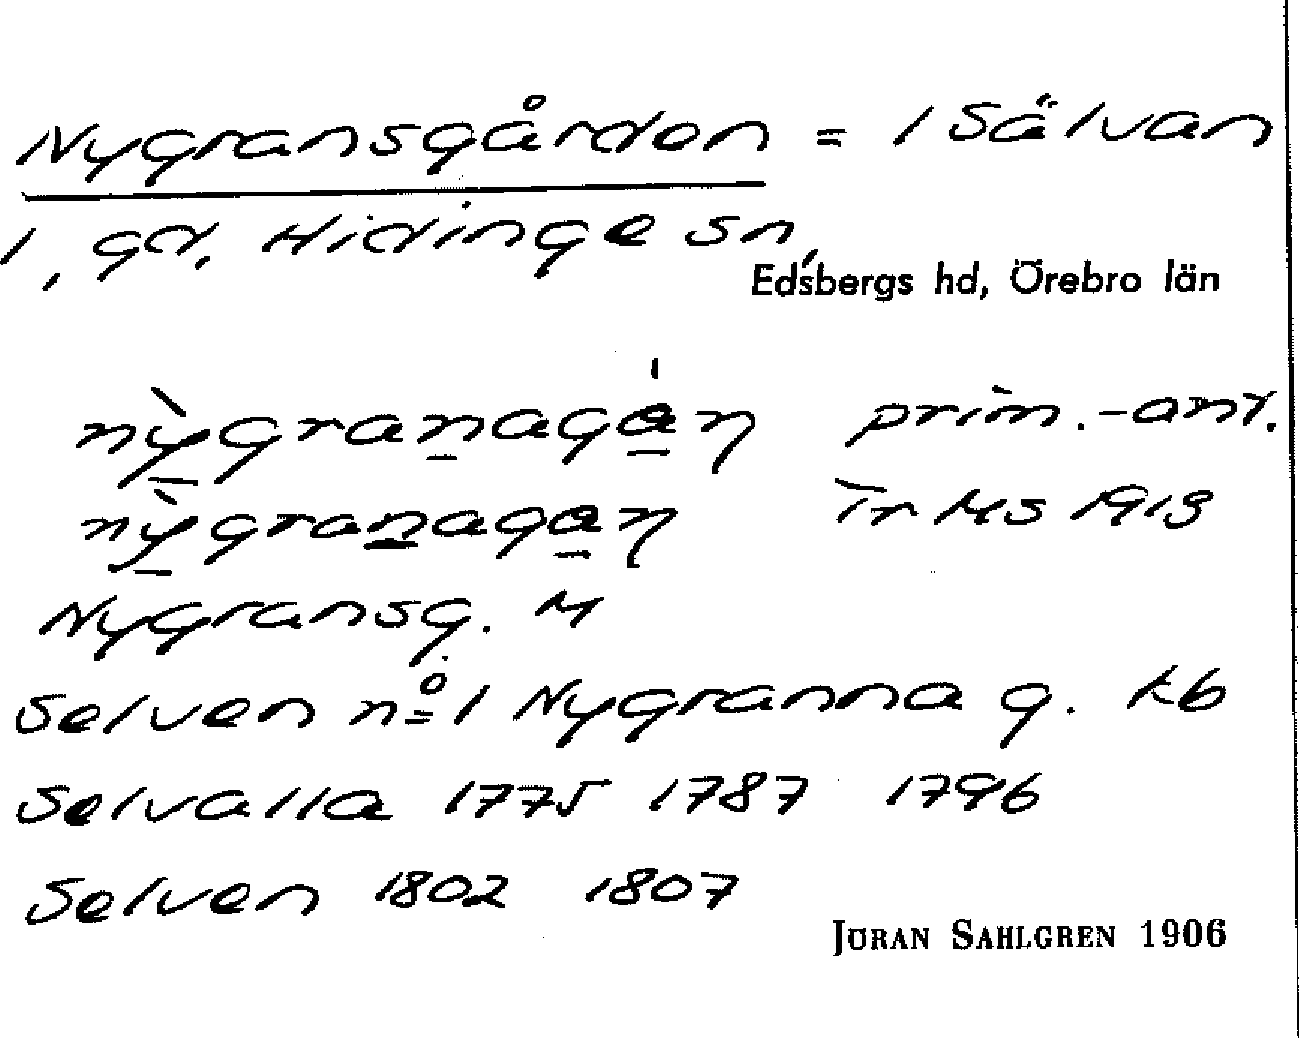 Nygransgården = 1 Sälvan
1, gd, Hidinge sn,
Edsbergs hd, Örebro län
nỳgranagáŋ prim.-ant.
nỳgranagaŋ
Nygransg. M
Selven nº 1 Nygranna g. kb
Selvalla 1775 1787 1796
Selven 1802 1807
JÖRAN SAHLGREN 1906